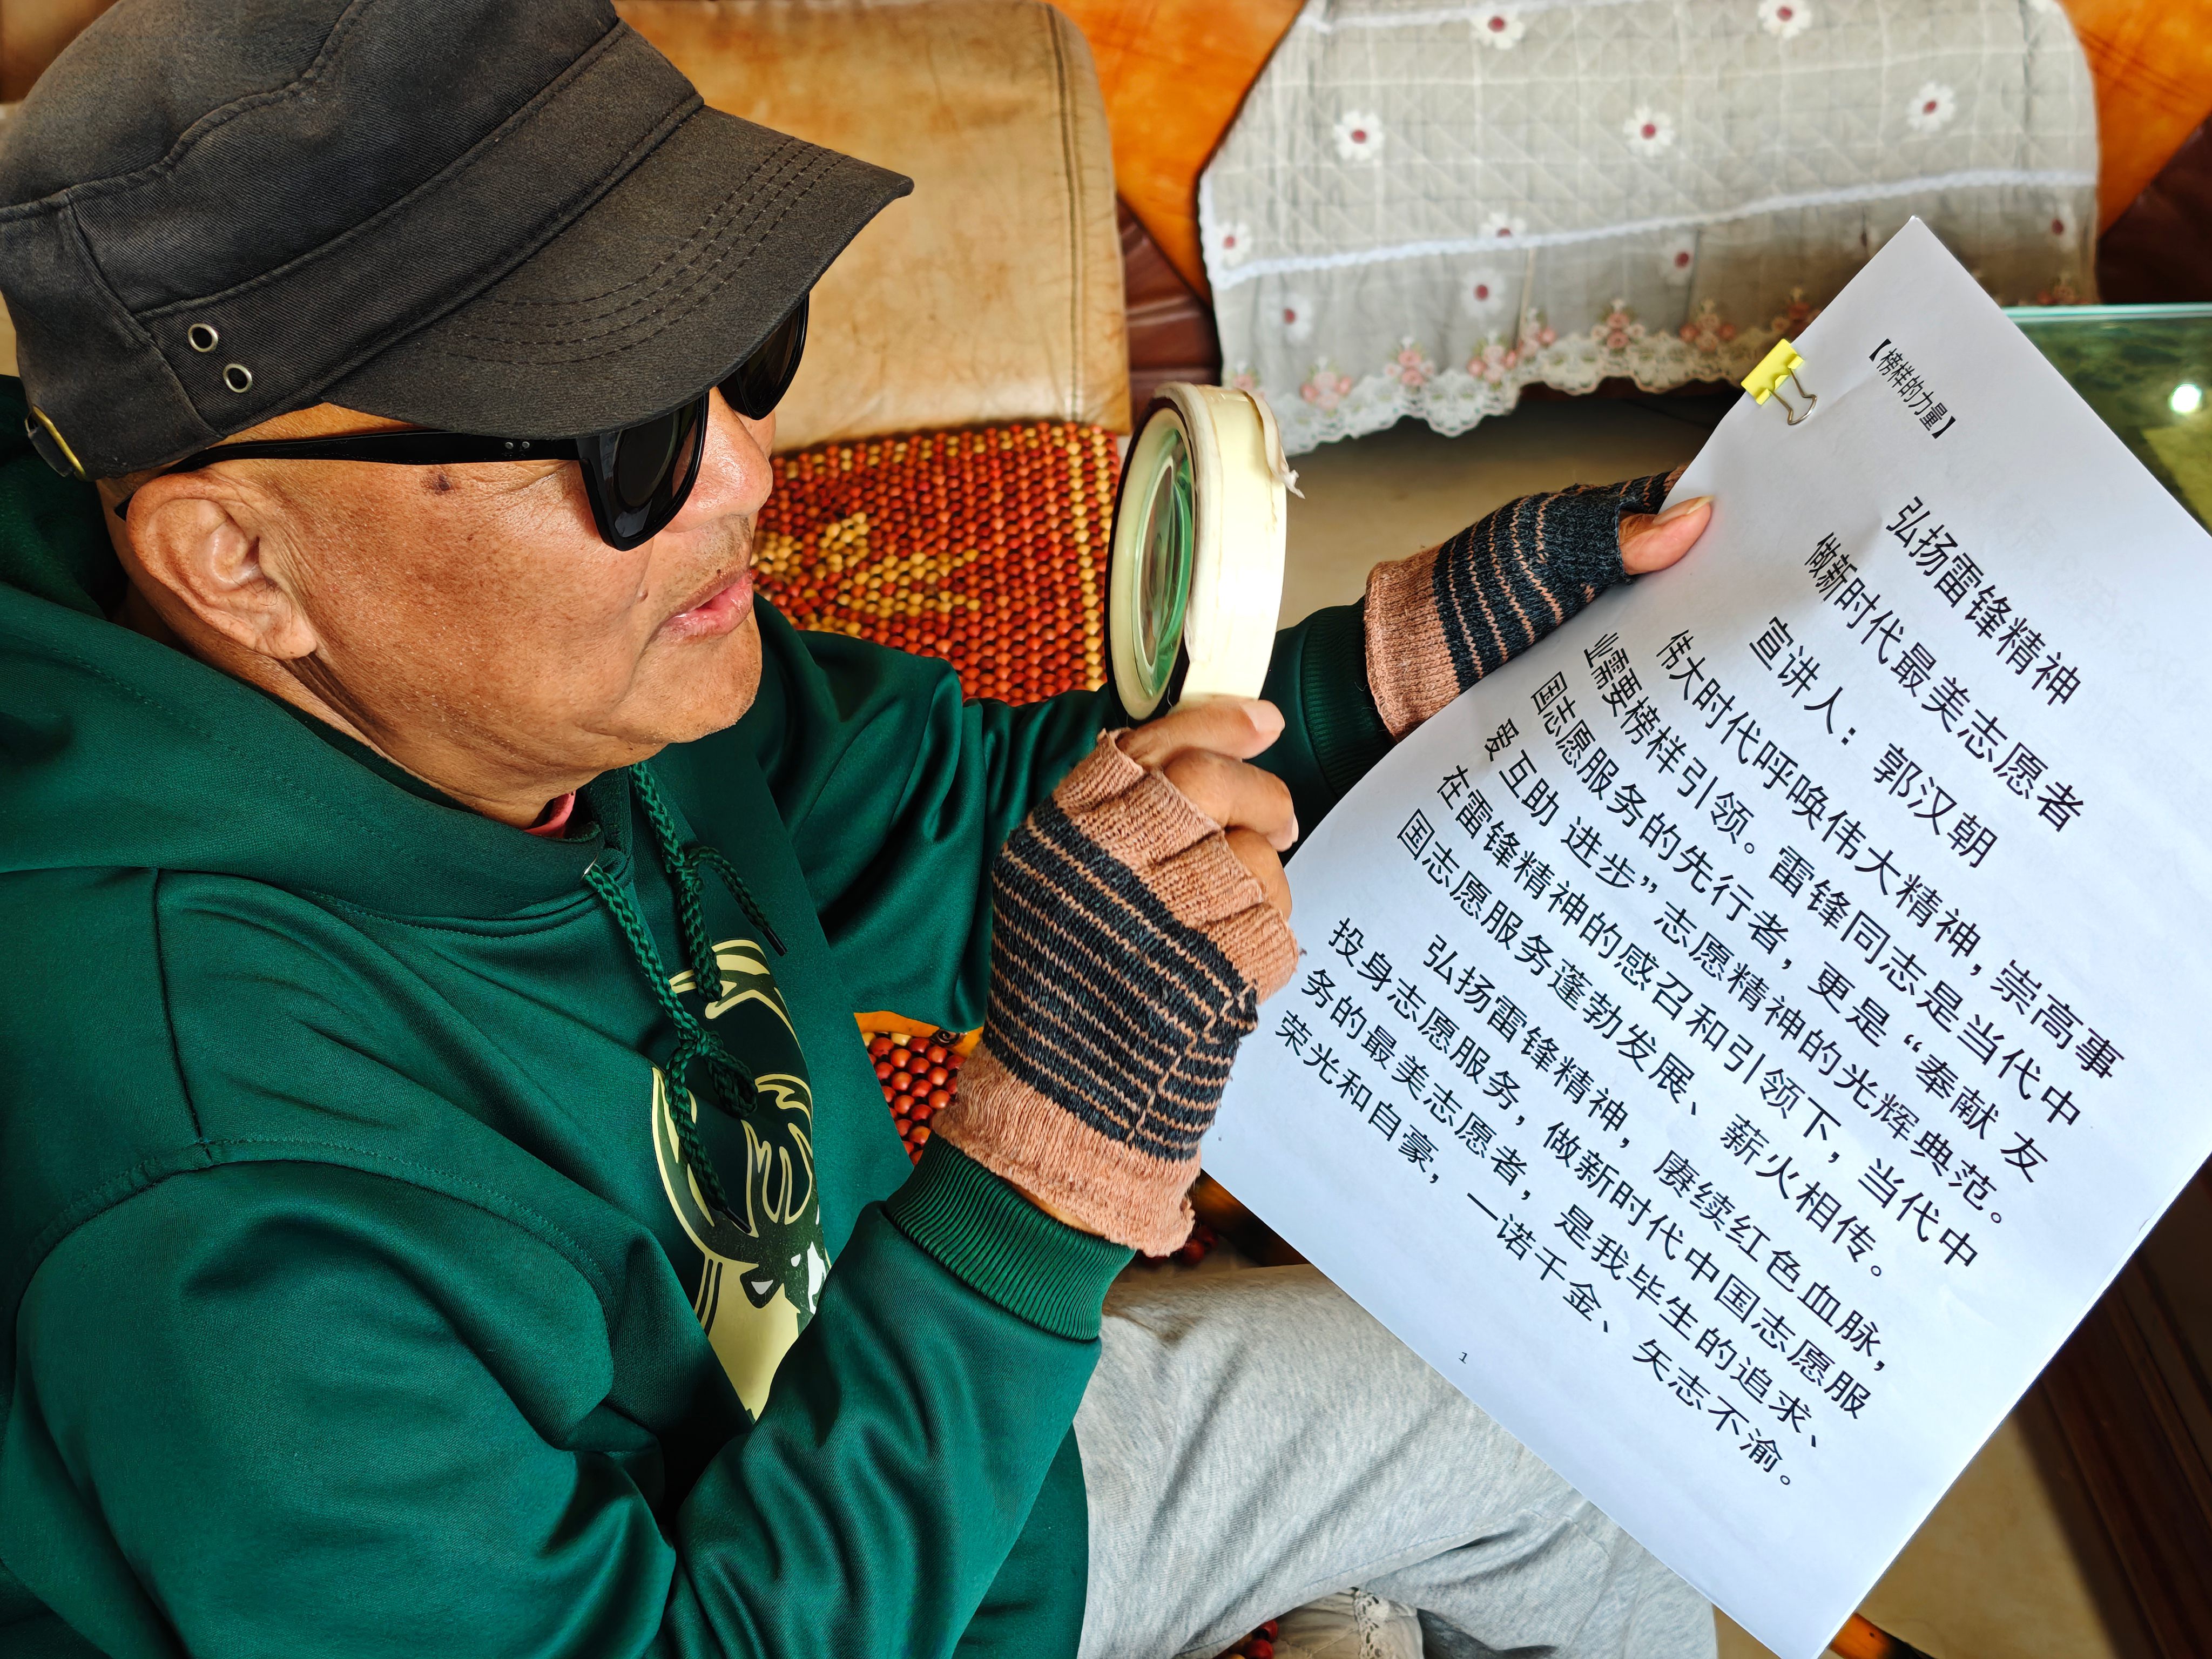 【榜样的力量】
弘扬雷锋精神
做新时代最美志愿者
宣讲人：郭汉朝
伟大时代呼唤伟大精神，崇高事
业需要榜样引领。雷锋同志是当代中
国志愿服务的先行者，更是“奉献 友
爱 互助 进步”志愿精神的光辉典范。
在雷锋精神的感召和引领下，当代中
国志愿服务蓬勃发展、薪火相传。
弘扬雷锋精神，赓续红色血脉，
投身志愿服务，做新时代中国志愿服
务的最美志愿者，是我毕生的追求、
荣光和自豪，一诺千金、矢志不渝。
1